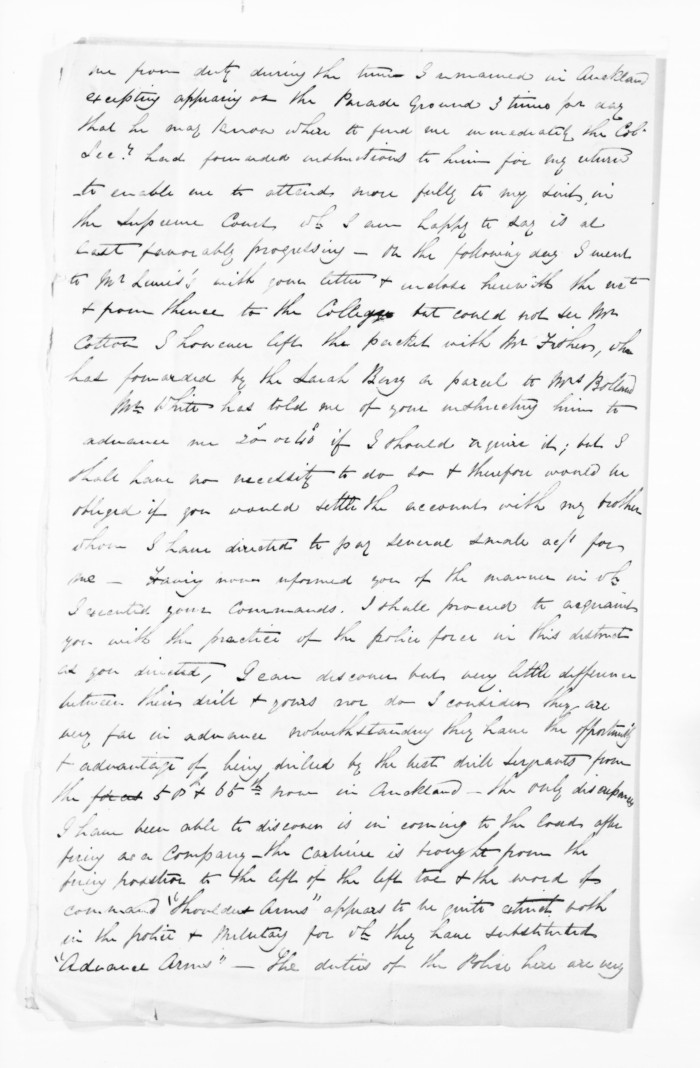 me from duty during the time I remained in Auckland
excepting appearing on the Parade Ground 3 times per day
that he may know where to find me immediately the Col.
Secy. had forwarded instructions to him for my return
to enable me to attend more fully to my suit in
the Supreme Court wh. I am happy to say is at
last favorably progressing - On the following day I went
to Mr Lewis's with your letter & enclose herewith the rect
& from thence to the College but could not see Mr
Cotton I however left the packet with Mr Fisher, who
has forwarded by the Sarah Berry a parcel to Mrs Bolland
Mr White has told me of your instructing him to
advance me 20s or 40s if I should require it; but I
shall have no necessity to do so & therefore would be
obliged if you would settle the account with my brother
whom I have directed to pay several small acts for
me - Having now informed you of the manner in wh.
I executed your commands. I shall proceed to acquaint
you with the practice of the police force in this district
as you directed, I can discover but very little difference
between their drill & yours nor do I consider they are
very far in advance notwithstanding they have the opportunity
& advantage of being drilled by the best drill sergeants from
the 58th & 65th now in Auckland - the only discrepancy
I have been able to discover is in coming to the load after
firing as a Company - the carbine is brought from the
firing position to the left of the left toe & the word of
command "Shoulder Arms" appears to be quite extinct both
in the police & Military for wh. they have substituted
"Advance Arms" - The duties of the Police here are very